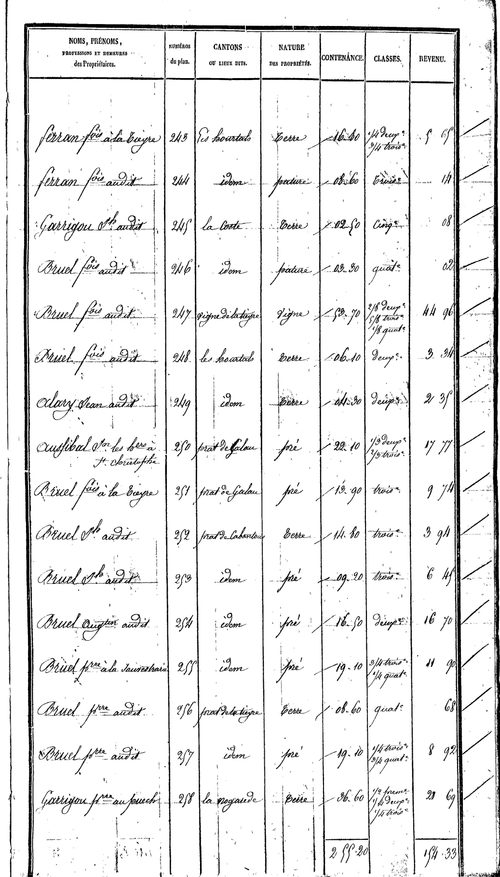 NOMS, PRÉNOMS, PROFESSIONS ET DEMEURES des Propriétaires. NUMÉROS du plan. CANTONS OU LIEUX DITS. NATURE DES PROPRIÉTÉS. CONTENANCE. CLASSES. REVENU.
ferran fois à la Vieyre 243 les hourtals Terre 16.40 1/4 deuxe 3/4 troise 5 65
ferran fois audit 244 idem pature 08.60 troise 14
Garrigou audit 245 la Coste Terre 02.50 Cinqe 08
Bruel fois audit 246 idem pature 03.30 quate 02
Bruel fois audit 247 vigne Vigne 53.70 2/8 deuxe 5/8 troise 1/8 quate 44 96
Bruel fois audit 248 les hourtals Terre 06.10 deuxe 3 34
Alary Jean audit 249 idem Terre 04.30 deuxe 2 35
Aussibal les hers à St Christophe 250 prat de Galau pré 22.10 1/3 deuxe 2/3 troise 17 77
Bruel fois à la Vieyre 251 prat de Galau pré 13.90 troise 9 74
Bruel audit 252 Terre 14.80 troise 3 94
Bruel audit 253 idem pré 09.20 troise 6 45
Bruel Augtin audit 254 idem pré 16.50 deuxe 16 70
Bruel prre à la 255 idem pré 19.10 3/4 troise 1/4 quate 11 90
Bruel prre audit 256 Terre 08.60 quate 68
Bruel prre audit 257 idem pré 19.10 1/4 troise 3/4 quate 8 92
Garrigou prre au puech 258 la noyarede Terre 36.60 1/2 preme 1/4 deuxe 1/4 troise 21 69
2 55.20 154.33